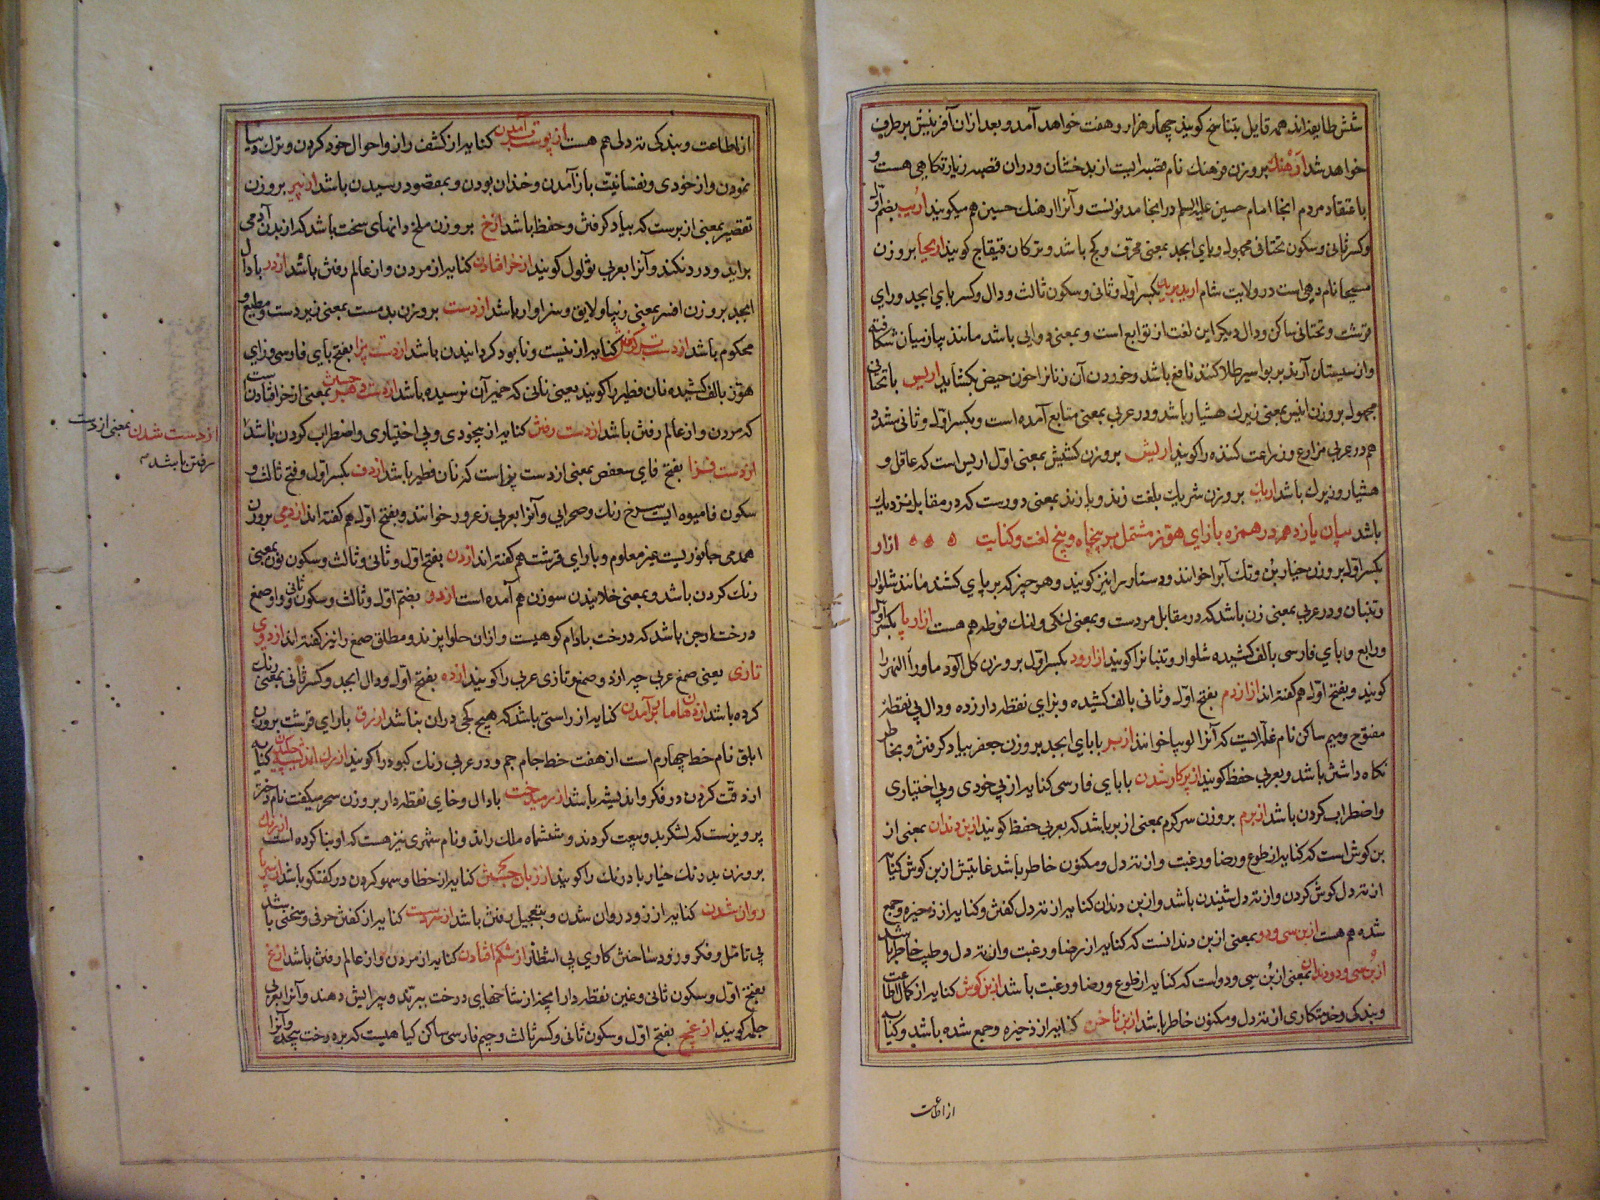 شش طایفه‌اند همه قایل بتناسخ کویند چهار هزار و هفت خواهد آمد و بعد ازان آفرینش برطرف
خواهد شد آرهنک بروزن فرهنک نام قصبه ایست از بدخشان و دران قصبه زیارتکاهی هست و
باعتقاد مردم انجا امام حسین علیه السلام در انجا مدفونست و آنرا ارهنک حسین هم میکویند اریب بضم اول
و کسر ثانی و سکون تحتانی مجهول و بای ابجد بمعنی محرف و کج باشد و ترکان قیقاج کویند اریحا بروزن
مسیحا نام دهی است در ولایت شام اربدبرید بکسر اول و ثانی و سکون ثالث و دال و کسر بای ابجد و رای
قرشت و تحتانی ساکن و دال دیکر این لغت از توابع است و بمعنی دوایی باشد مانند پیاز میان شکافته
و از سیستان آرند بر بواسیر طلا کنند نافع باشد و خوردن آن زنانرا خون حیض بکشاید اریس با تحتانی
مجهول بروزن انیس بمعنی زیرک هشیار باشد و در عربی بمعنی متابع آمده است و بکسر اول و ثانی مشدد
هم در عربی مزارع و زراعت کننده را کویند اریش بروزن کشیش بمعنی اول اریس است که عاقل و
هشیار و زیرک باشد اریک بروزن شریک بلغت زند و پازند بمعنی دورست که در مقابل نزدیک
باشد بیان یازدهم در همزه با زای هوز مشتمل بر پنجاه و پنج لغت و کنایت ازار
بکسر اول بروزن خیار بن و تک آبرا خوانند و دستار را نیز کویند و هر چیز که بر پای کشند مانند شلوار
و تنبان و در عربی بمعنی زن باشد که در مقابل مردست و بمعنی لنکی و لنک فوطه هم هست ازار پا بکسر اول
و رابع و بای فارسی بالف کشیده شلوار و تنبانرا کویند ازارود بکسر اول بروزن کل آلود ماوراالنهر را
کویند و بفتح اول هم کفته‌اند ازازدم بفتح اول و ثانی بالف کشیده و بزای نقطه دار زده و دال بی نقطه
مفتوح و میم ساکن نام غله ایست که آنرا لوبیا خوانند ازبر با بای ابجد بروزن جعفر بیاد کرفتن و بخاطر
نکاه داشتن باشد و بعربی حفظ کویند از پرکار شدن با بای فارسی کنایه از بی خودی و بی اختیاری
و اضطراب کردن باشد ازبرم بروزن سرکرم بمعنی از بر باشد که بعربی حفظ کویند از بن دندان بمعنی از
بن کوش است که کنایه از طوع و رضا و رغبت و از ته دل و مکنون خاطر باشد غایتش از بن کوش کنایه
از ته دل کوش کردن و از ته دل شنیدن باشد و از بن دندان کنایه از ته دل کفتن و کنایه از ذخیره و جمع
شده هم هست از بن سی و دو بمعنی از بن دندانست که کنایه از رضا و رغبت و از ته دل و طیب خاطر باشد
از بن سی و دو دندان بمعنی از بن سی و دو است که کنایه از طوع و رضا و رغبت باشد از بن کوش کنایه از کمال اطاعت
و بندکی و خدمتکاری از ته دل و مکنون خاطر باشد از بن ناخن کنایه از ذخیره و جمع شده باشد و کنایه
از اطاعت
از اطاعت و بندکی ته دلی هم هست از پوست برآمدن کنایه از کشف راز و احوال خود کردن و ترک دنیا
نمودن و از خودی و نفسانیت باز آمدن و خندان بودن و بمقصود رسیدن باشد ازبیر بروزن
تقصیر بمعنی از برست که بیاد کرفتن و حفظ باشد ازخ بروزن ملخ دانهای سخت باشد که از بدن آدمی
براید و درد نکند و آنرا بعربی ثؤلول کویند از خر افتادن کنایه از مردن و از عالم رفتن باشد ازدر با دال
ابجد بروزن افسر بمعنی زیبا و لایق و سزاوار باشد ازدست بروزن بدمست بمعنی زیردست و مطیع و
محکوم باشد از دست برکرفتن کنایه از نیست و نابود کردانیدن باشد ازدست پزا بفتح بای فارسی و زای
هوز بالف کشیده نان فطیر را کویند یعنی نانی که خمیر آن نرسیده باشد از دست بمعنی از خر افتادن است
که مردن و از عالم رفتن باشد از دست رفتن کنایه از بیخودی و بی اختیاری و اضطراب کردن باشد
ازدست فزا بفتح فای سعفص بمعنی ازدست پزا است که نان فطیر باشد ازدف بکسر اول و فتح ثالث و
سکون فا میوه ایست سرخ رنک و صحرایی و آنرا بعربی زعرور خوانند و بفتح اول هم کفته‌اند ازدمی بروزن
همدمی جانوریست غیر معلوم و با رای قرشت هم کفته‌اند ازدن بفتح اول و ثانی و ثالث و سکون نون بمعنی
رنک کردن باشد و بمعنی خلانیدن سوزن هم آمده است ازدو بضم اول و ثالث و سکون ثانی و واو صمغ
درخت ارجن باشد که درخت بادام کوهیست و ازان حلوا پزند و مطلق صمغ را نیز کفته‌اند ازدوی
تازی یعنی صمغ عربی چه ازدو صمغ و تازی عربی را کویند ازده بفتح اول و دال ابجد و کسر ثانی بمعنی رنک
کرده باشد از دهان مار برآمدن کنایه از راستی باشد که هیچ کجی دران نباشد ازرق با رای قرشت بروزن
ابلق نام خط چهارم است از هفت خط جام جم و در عربی رنک کبود را کویند از رک اندیشه خون چکیدن کنایه
از دقت کردن در فکر و اندیشه باشد ازرمیدخت با دال و خای نقطه دار بروزن سحر میکفت نام دختر
پرویزست که لشکر بدو بیعت کردند و ششماه ملک راند و نام شهری نیز هست که او بنا کرده است ازرنک
بروزن بدرنک خیار بادرنک را کویند از زبان جستن کنایه از خطا و سهو کردن در کفتکو باشد از سر پا
روان شدن کنایه از زود روان شدن و بتعجیل رفتن باشد از سردست کنایه از کفتن حرفی و سخنی باشد
بی تامل و فکر و زود ساختن کاری بی انتظار از شکم افتادن کنایه از مردن و از عالم رفتن باشد ازغ
بفتح اول و سکون ثانی و غین نقطه دار انچه از شاخهای درخت ببرند و پیرایش دهند و آنرا بعربی
جلمه کویند ازغج بفتح اول و سکون ثانی و کسر ثالث و جیم فارسی ساکن کیاهیست که بر درخت پیچد و آنرا
ازدست شدن بمعنی ازدست
رفتن باشد